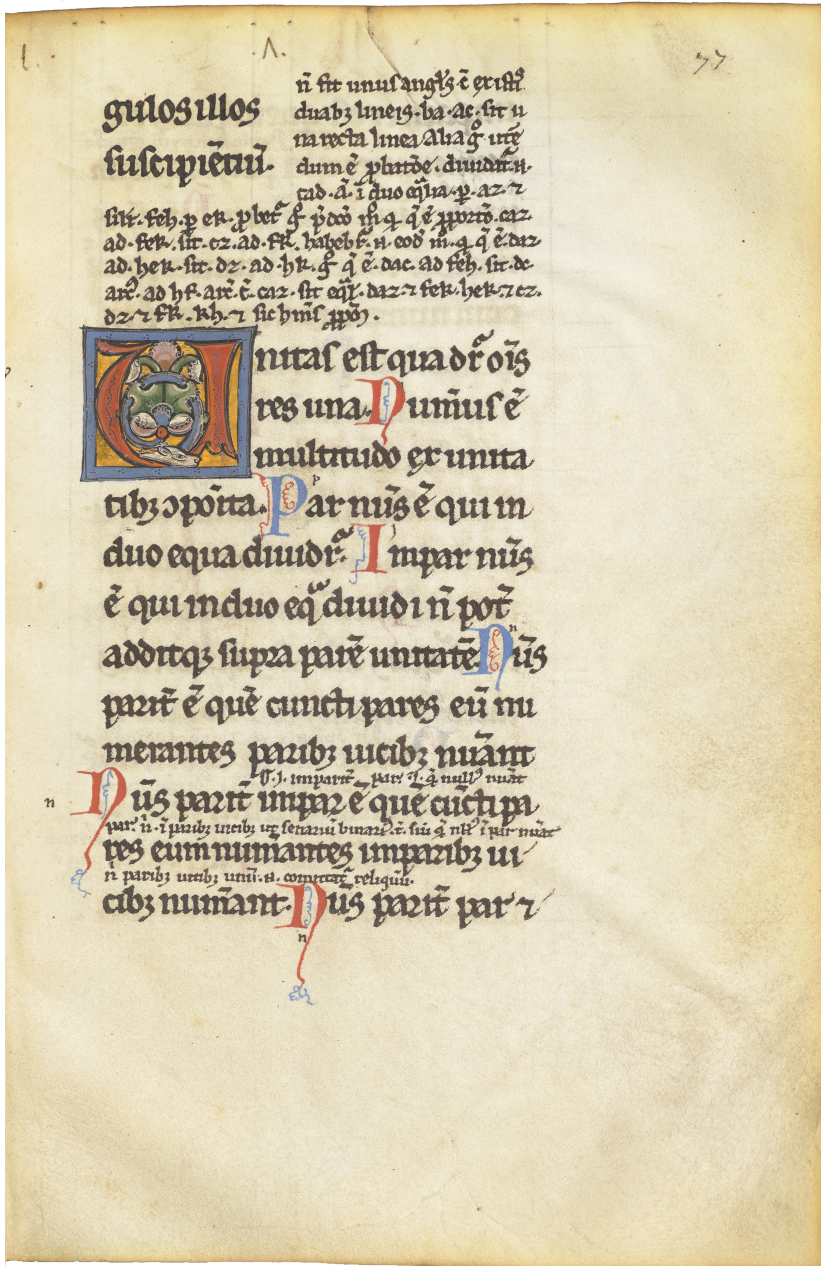 l. Λ. 77
n̄ sit unus angl̄s ē existn̄s
gulos illos
duabꝫ lineis·ba·ac·sit u
na recta linea Alia gͦ uitē
suscipiētiū·
dum ē ꝓbatōe·diuidat̄·n·
cad·a·ī duo eq̄lia·ꝑ·az·⁊
silr̄·feh·ꝑ ek·ꝓbet᷑ gͦ
ad·fek·sit·cz·ad·fk·habebt᷑·n·eod̄ m̄·q q̄ ē·daz
ad·hek·sit·dz·ad·hk·gͦ q̄ ē·dac·ad feh·sit·dc·
arc᷑·ad hf·arc̄·c̄·caz·sit eq̄lr̄·daz·⁊ fek·hek·⁊ cz·
dz·⁊ fk·kh·⁊ sic
Unitas est qua dr̄ oīs
res una· Num̄us ē
multitudo ex unita
tibꝫ ↄpoīta· Par nūs ē qui in
duo equa diuidr̄· Impar nūs
ē qui in duo eqᵃ diuidi n̄ pot̄
additqꝫ supra parē unitatē· Nūs
parit̄ ē quē cuncti pares eū nu
merantes paribꝫ uicibꝫ nūant
imparit̄ par· null᷒ nūat
Nūs parit̄ impar ē quē cūcti pa
par·n̄·ī paribꝫ uicibꝫ ut senariū binari᷒·
res eum num̄antes imparibꝫ ui
n̄ paribꝫ uicibꝫ unū·n· comitat᷑ reliquū·
cibꝫ num̄ant· Nūs parit̄ par ⁊